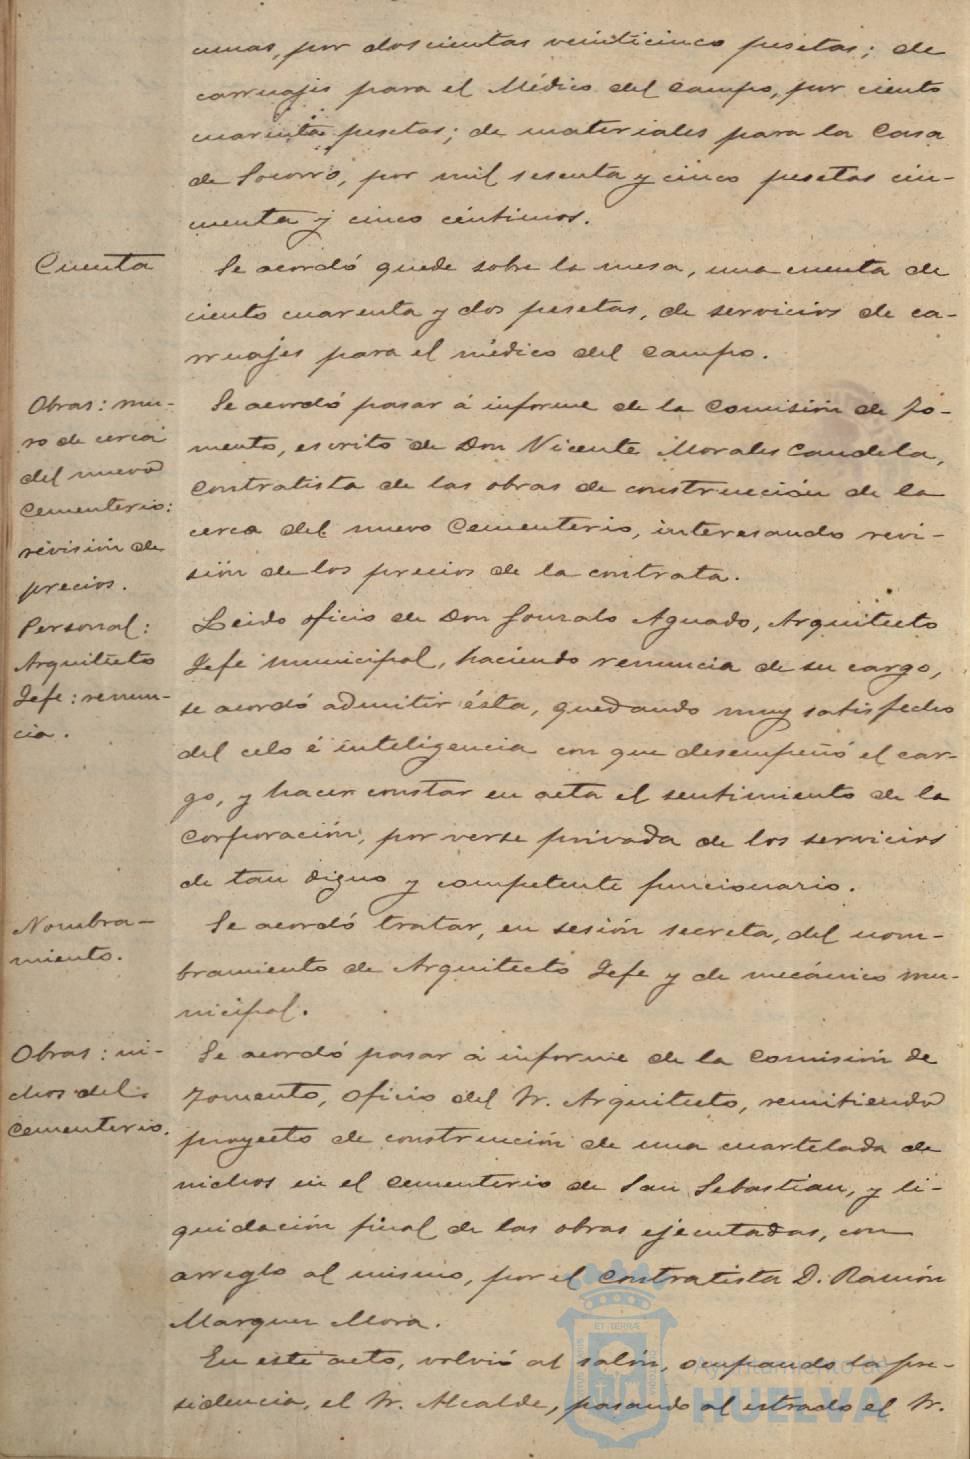 cunas, por doscientas veinticinco pesetas; de
carruajes para el Médico del Campo, por ciento
cuarenta pesetas; de materiales para la Casa
de Socorro, por mil sesenta y cinco pesetas cin-
cuenta y cinco céntimos.
Cuenta
Se acordó quede sobre la mesa, una cuenta de
ciento cuarenta y dos pesetas, de servicios de ca-
rruajes para el médico del Campo.
Obras: mu-
ro de cerca
del nuevo
Cementerio:
revisión de
precios.
Se acordó pasar á informe de la Comisión de Fo-
mento, escrito de Don Vicente Morales Candela,
Contratista de las obras de construcción de la
cerca del nuevo Cementerio, interesando revi-
sión de los precios de la contrata.
Personal:
Arquitecto
Jefe: renun-
cia.
Leido oficio de Don Gonzalo Aguado, Arquitecto
Jefe municipal, haciendo renuncia de su cargo,
se acordó admitir ésta, quedando muy satisfecho
del celo é inteligencia con que desempeñó el car-
go, y hacer constar en acta el sentimiento de la
Corporación, por verse privada de los servicios
de tan digno y competente funcionario.
Nombra-
miento.
Se acordó tratar, en sesión secreta, del nom-
bramiento de Arquitecto Jefe y de mecánico mu-
nicipal.
Obras: ni-
chos del
Cementerio.
Se acordó pasar á informe de la Comisión de
Fomento, oficio del Sr. Arquitecto, remitiendo
proyecto de construcción de una cuartelada de
nichos en el Cementerio de San Sebastian, y li-
quidación final de las obras ejecutadas, con
arreglo al mismo, por el Contratista D. Ramón
Marquez Mora.
En este acto, volvió al salón, ocupando la pre-
sidencia, el Sr. Alcalde, pasando al estrado el Sr.
Ayuntamiento de
HUELVA